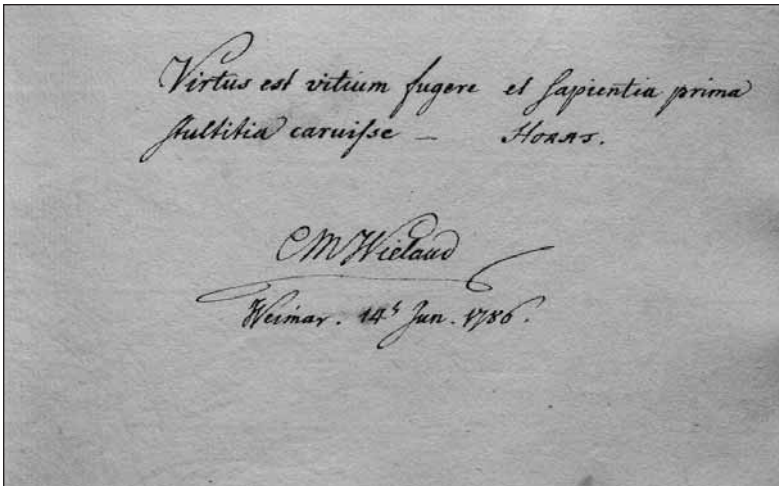 Virtus est vitium fugere et sapientia prima
stultitia caruisse — HORAT.
CMWieland
Weimar. 14t Jun. 1786.